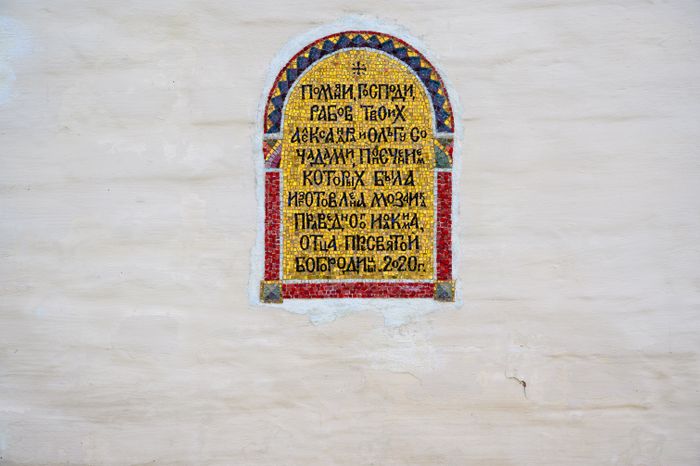 ПОМѦНИ, ГОСПОДИ,
РАБОВ ТВОИХ
АЛЕКСАНДРА И ОЛЬГУ СО
ЧАДАМИ, ПОПЕЧЕНИЕМ
КОТОРЫХ БЫЛА
ИЗГОТОВЛЕНА МОЗАИКА
ПРАВЕДНОГО ИОАКИМА,
ОТЦА ПРЕСВЯТОЙ
БОГОРОДИЦЫ. 2020 г.